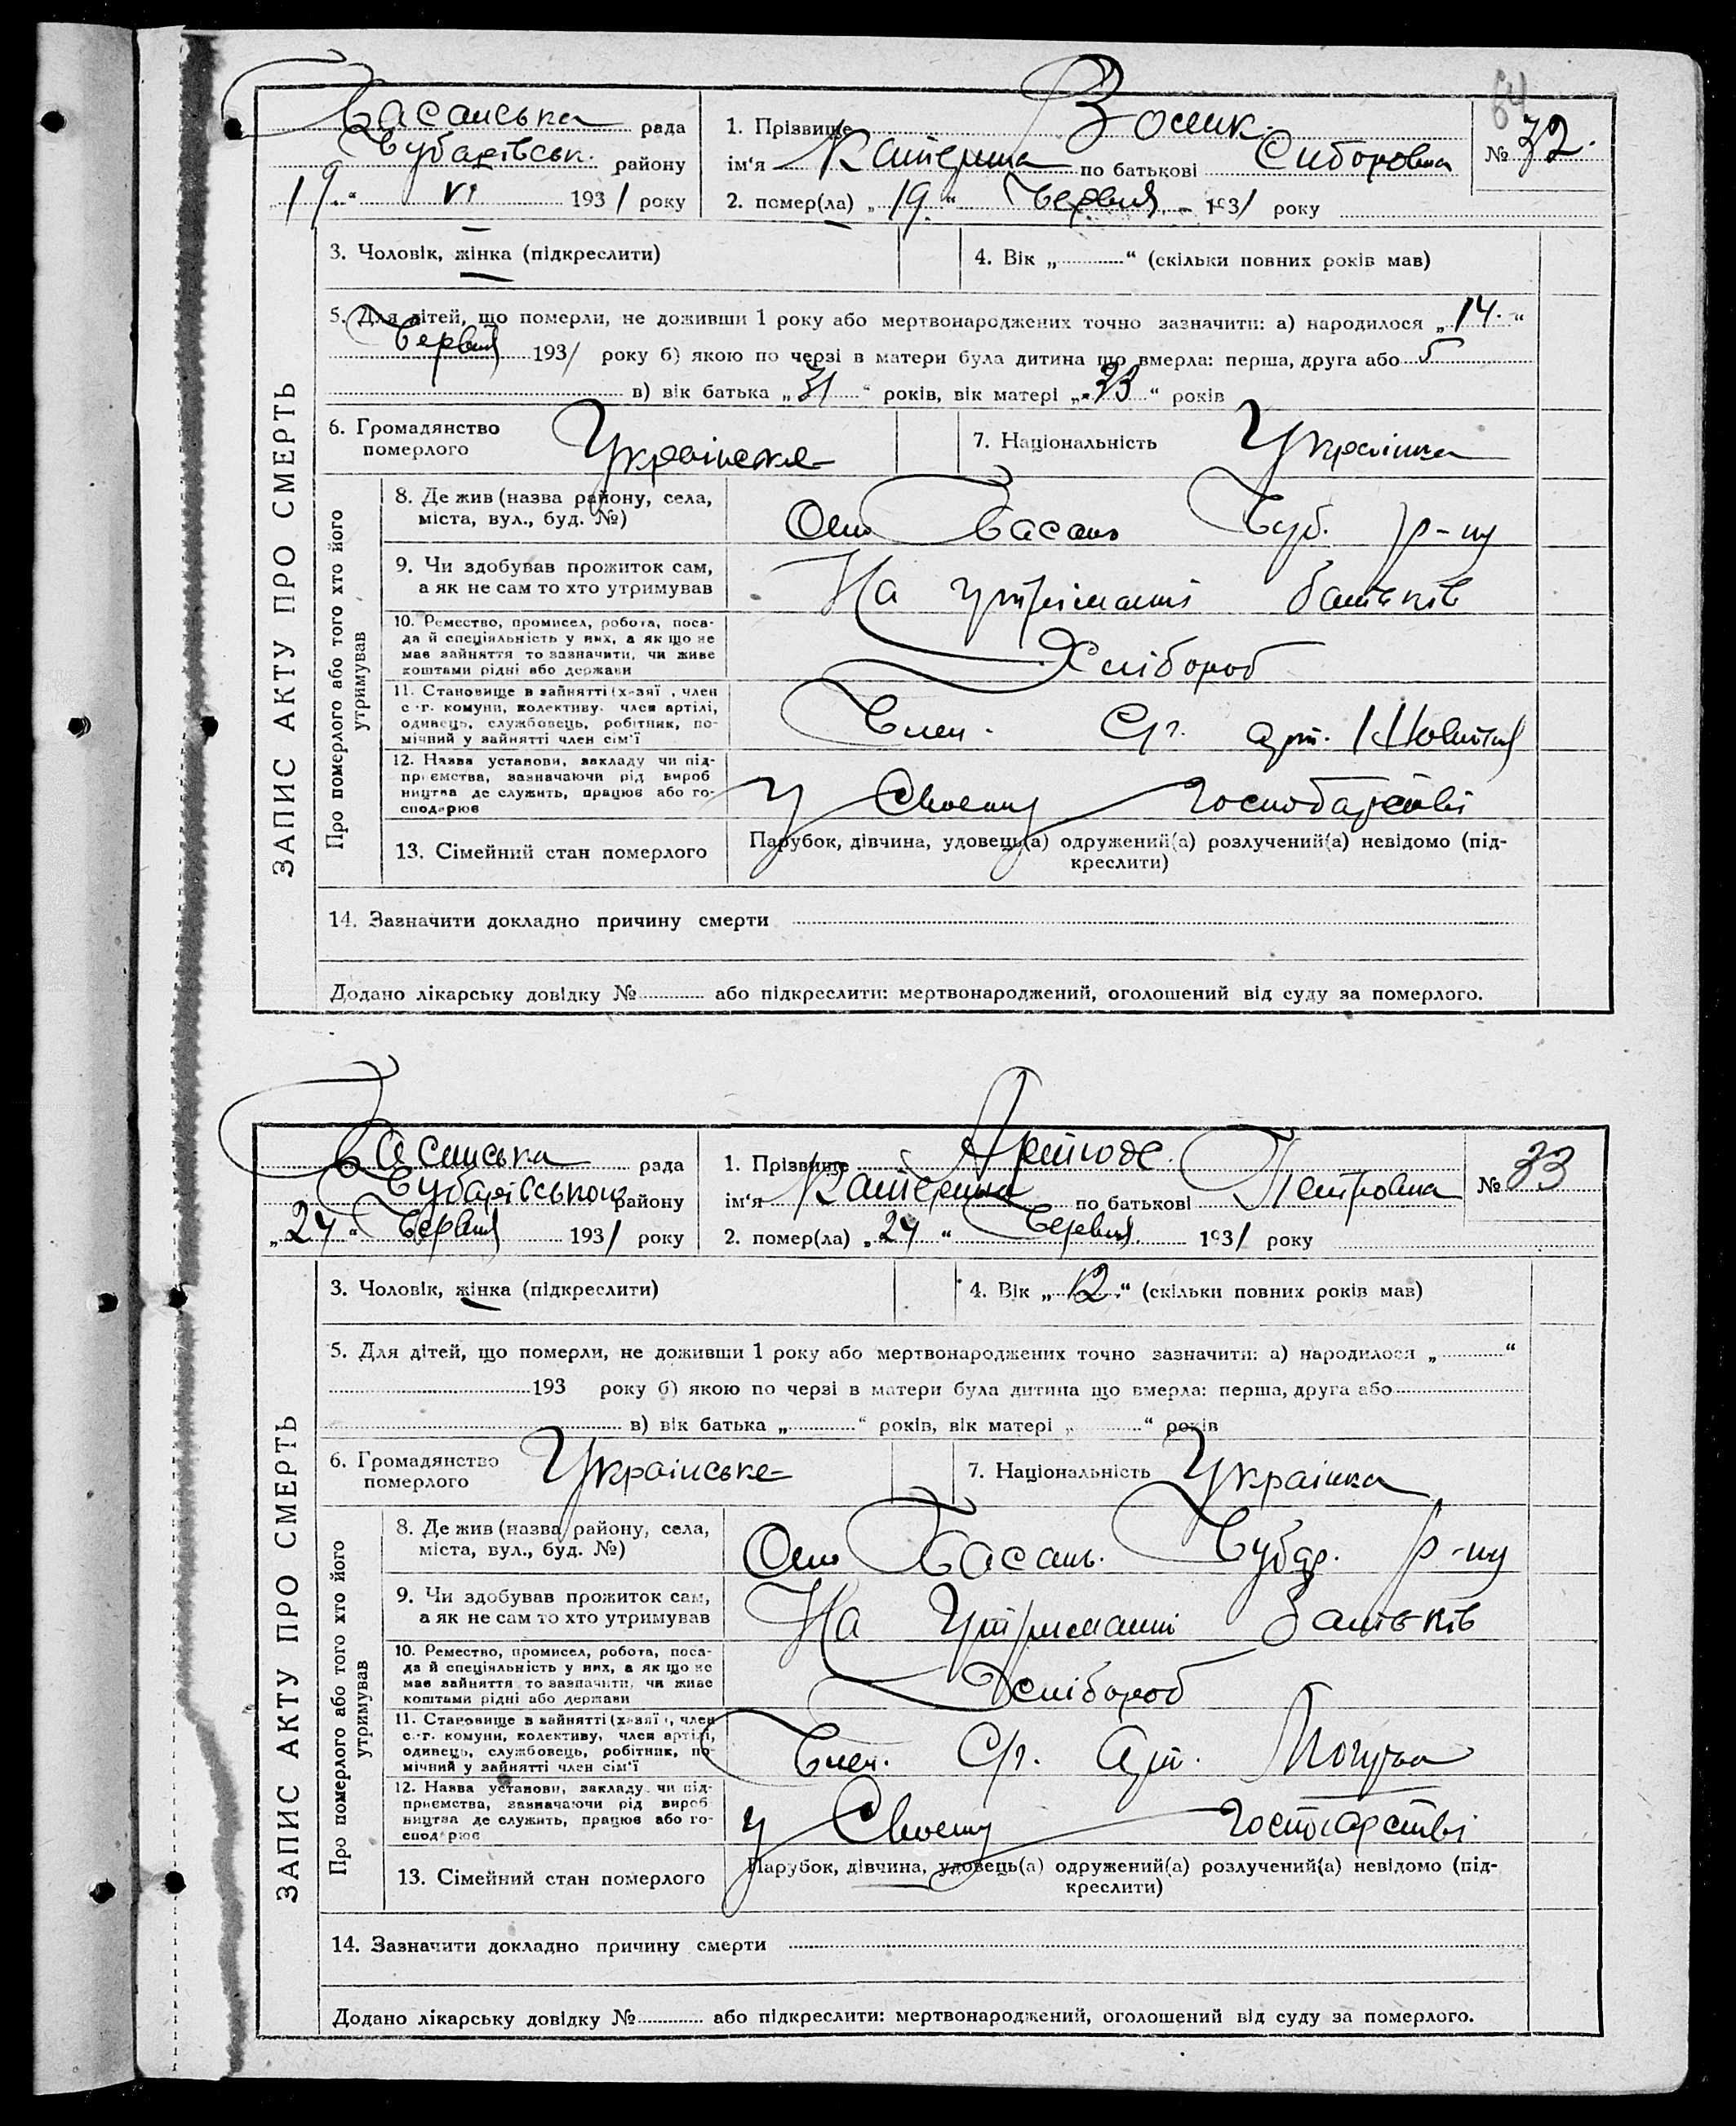 64
Басанська рада
Чубарівськ. району
„19.“ VI 1931 року
1. Прізвище
ім‘я Катерина по батькові Сидоровна
2. помер(ла) „19.“ Червня 1931 року
№ 32.
3. Чоловік, жінка (підкреслити)
4. Вік „ “ (скільки повних років мав)
5. Для дітей, що померли, не доживши 1 року або мертвонароджених точно зазначити: а) народилося „14.“
Червня 1931 року б) якою по черзі в матери була дитина що вмерла: перша, друга або 5
в) вік батька „31“ років, вік матері „33“ років
6. Громадянство
померлого Українське
7. Національність Українка
8. Де жив (назва району, села,
міста, вул., буд. №) Басань Чуб. р-ну
9. Чи здобував прожиток сам,
а як не сам то хто утримував На утриманні батьків
10. Ремество, промисел, робота, поса-
да й спеціяльність у них, а як що не
має зайняття то зазначити, чи живе
коштами рідні або держави Хлібороб
11. Становище в зайнятті (х-зяї , член
с.-г. комуни, колективу. член артілі,
одинець, службовець, робітник, по-
мічний у зайнятті член сім'ї Член. С/г. арт.
12. Назва установи, закладу чи під-
приємства, зазначаючи рід вироб
ництва де служить, працює або го-
сподарює у Своему господарстві
13. Сімейний стан померлого Парубок, дівчина, удовець(а) одружений(а) розлучений(а) невідомо (під-
креслити)
14. Зазначити докладно причину смерти
Додано лікарську довідку № або підкреслити: мертвонароджений, оголошений від суду за померлого.
ЗАПИС АКТУ ПРО СМЕРТЬ
Про померлого або того хто його
утримував
Басанська рада
Чубарівського району
„24“ Червня 1931 року
1. Прізвище
ім‘я Катерина по батькові Петровна
2. помер(ла) „24“ Червня 1931 року
№ 33
3. Чоловік, жінка (підкреслити)
4. Вік „12“ (скільки повних років мав)
5. Для дітей, що померли, не доживши 1 року або мертвонароджених точно зазначити: а) народилося „ “
193 року б) якою по черзі в матери була дитина що вмерла: перша, друга або
в) вік батька „ “ років, вік матері „ “ років
6. Громадянство
померлого Українське
7. Національність Українка
8. Де жив (назва району, села,
міста, вул., буд. №) Басань. Чубар. р-ну
9. Чи здобував прожиток сам,
а як не сам то хто утримував На Утриманні Батьків
10. Ремество, промисел, робота, поса-
да й спеціяльність у них, а як що не
має зайняття то зазначити, чи живе
коштами рідні або держави Хлібороб
11. Становище в зайнятті (х-зяї , член
с.-г. комуни, колективу, член артілі,
одинець, службовець, робітник, по-
мічний у зайнятті член сім'ї Член. С/г. Арт.
12. Назва установи, закладу чи під-
приємства, зазначаючи рід вироб
ництва де служить, працює або го-
сподарює у Своему господарстві
13. Сімейний стан померлого Парубок, дівчина, удовець(а) одружений(а) розлучений(а) невідомо (під-
креслити)
14. Зазначити докладно причину смерти
Додано лікарську довідку № або підкреслити: мертвонароджений, оголошений від суду за померлого.
ЗАПИС АКТУ ПРО СМЕРТЬ
Про померлого або того хто його
утримував